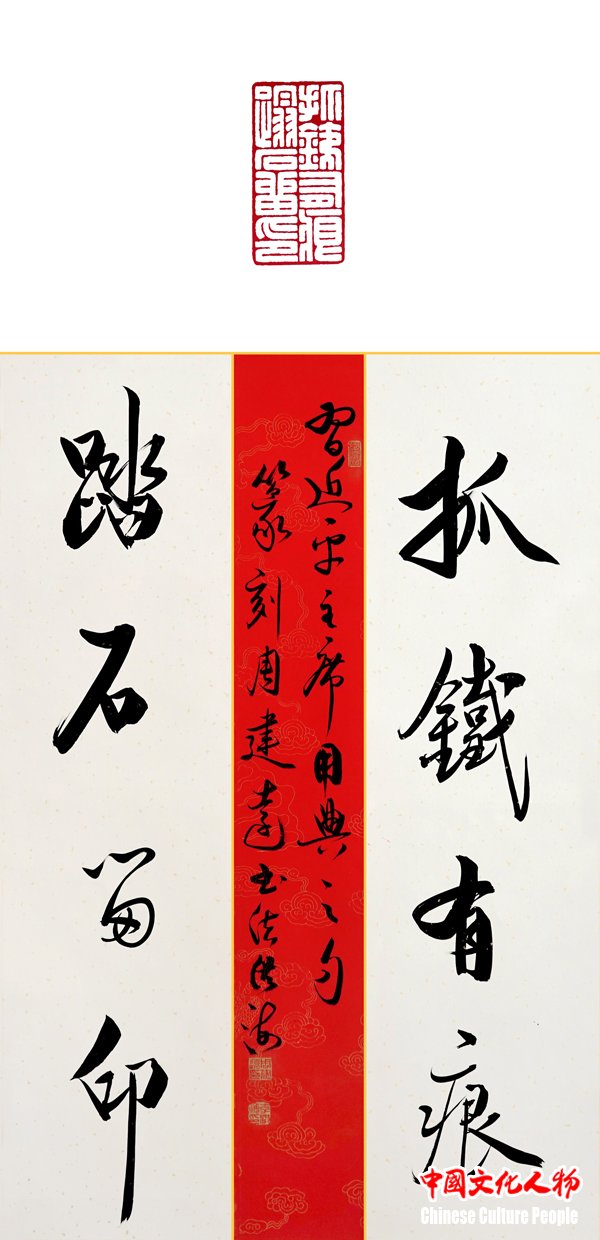 抓銕有痕
蹋石留印
抓鐵有痕
習近平主席用典之句
篆刻周建遠书法洪海
踏石留印
中國文化人物
Chinese Culture People